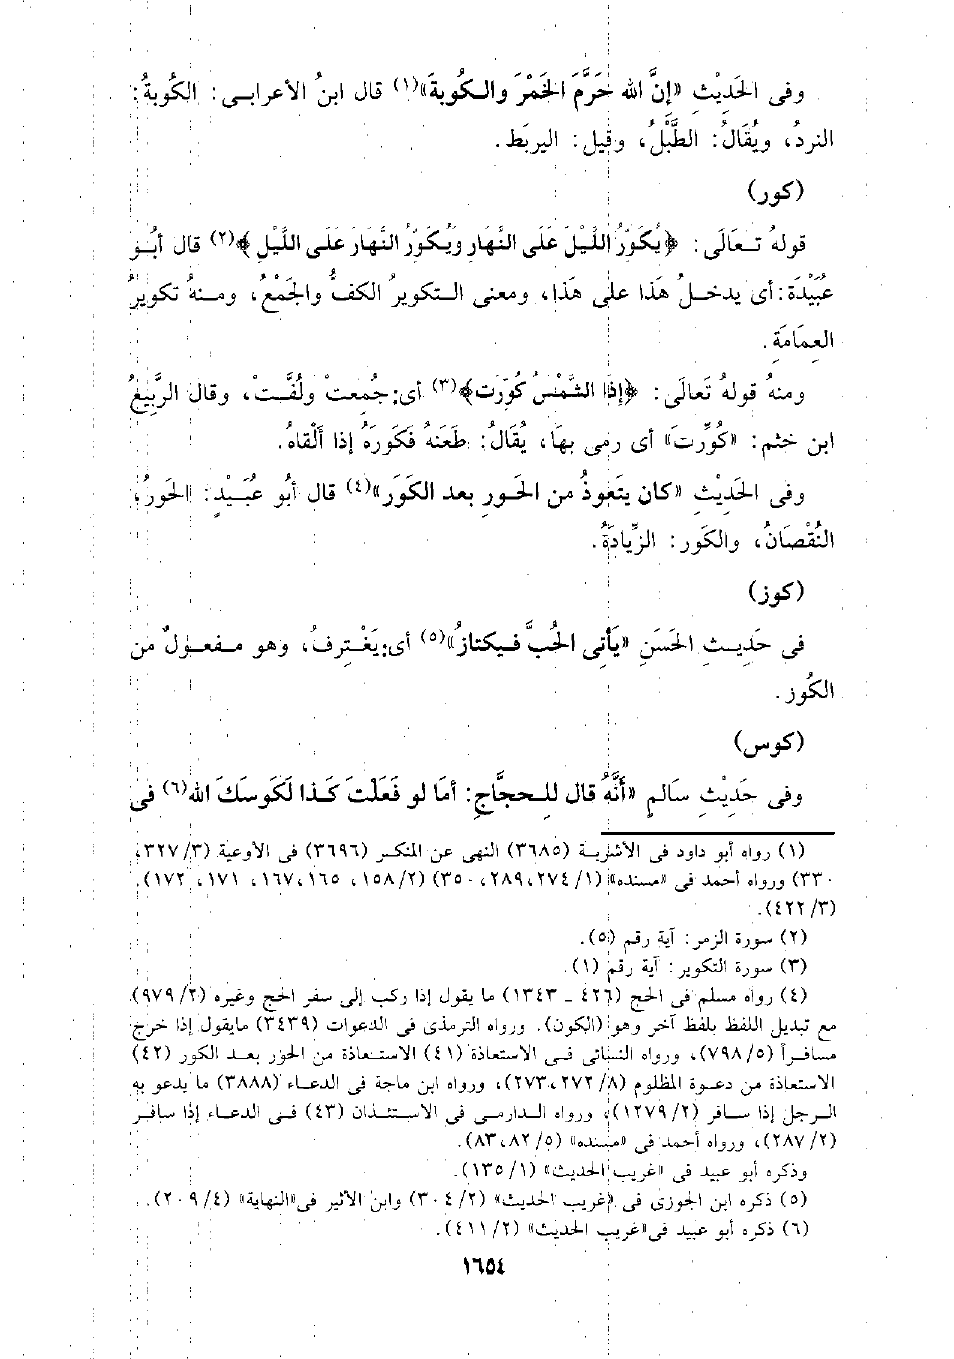 وفى الحَدِيْثِ «إنَّ الله حَرَّمَ الخَمْرَ والكُوبةَ»(١) قال ابنُ الأعرابى: الكُوبةُ:
النردُ، ويُقَالُ: الطَّبْلُ، وقيل: اليربَط.
(كور)
قولهُ تعَالَى: ﴿يُكَوّرُ اللَّيْلَ عَلَى النَّهارِ ويُكَوّرُ النَّهارَ عَلَى اللَّيْلِ﴾(٢) قال أبُو
عبَيْدَة: أى يدخلُ هَذَا على هَذَا، ومعنى التكويرُ الكفُّ والجَمْعُ، ومنهُ تكويرُ
العِمَامَةِ.
ومنهُ قولهُ تَعالَى: ﴿إذَا الشَّمْسُ كُورَّت﴾(٣) أى: جُمعتْ ولُفَّتْ، وقال الرَّبِيعُ
ابن خثم: «كُورِّتَ» أى رمى بهَا، يُقَالُ: طَعَنهُ فكَورَهُ إذا ألْقاهُ.
وفى الحَدِيْثِ «كان يتَعوذُ من الحَورِ بعد الكَوَر»(٤) قال أبُو عُبَيْدٍ: الحَورُ،
النُقْصَانُ، والكَور: الزِّيادَةُ.
(كوز)
فى حَدِيثِ الحَسَنِ «يَأتى الحُبَّ فيكتازُ»(٥) أى: يَغْترِفُ، وهو مفعولٌ من
الكُوز.
(كوس)
وفى حَدِيْثِ سَالمٍ «أنَّهُ قال لِلحجَّاجِ: أمَا لو فَعَلْتَ كَذا لَكَوسَكَ الله(٦) فى
(١) رواه أبو داود فى الأشربة (٣٦٨٥) النهى عن المنكر (٣٦٩٦) فى الأوعية (٣/ ٣٢٧،
٣٣٠) ورواه أحمد فى «مسنده» (١/ ٢٧٤، ٢٨٩، ٣٥٠) (٢/ ١٥٨، ١٦٥، ١٦٧، ١٧١، ١٧٢).
(٣/ ٤٢٢).
(٢) سورة الزمر: آية رقم (٥).
(٣) سورة التكوير: آية رقم (١).
(٤) رواه مسلم فى الحج (٤٢٦ ـ ١٣٤٣) ما يقول إذا ركب إلى سفر الحج وغيره (٢/ ٩٧٩)
مع تبديل اللفظ بلفظ آخر وهو (الكون). ورواه الترمذى فى الدعوات (٣٤٣٩) مايقول إذا خرج
مسافراً (٥/ ٧٩٨)، ورواه النسائى فى الاستعاذة (٤١) الاستعاذة من الحور بعد الكور (٤٢)
الاستعاذة من دعوة المظلوم (٨/ ٢٧٢، ٢٧٣)، ورواه ابن ماجة فى الدعاء (٣٨٨٨) ما يدعو به
الرجل إذا سافر (٢/ ١٢٧٩)، ورواه الدارمى فى الاستئذان (٤٣) فى الدعاء إذا سافر
(٢/ ٢٨٧)، ورواه أحمد فى «مسنده» (٥/ ٨٢، ٨٣).
وذكره أبو عبيد فى «غريب الحديث» (١/ ١٣٥).
(٥) ذكره ابن الجوزى فى «غريب الحديث» (٢/ ٣٠٤) وابن الأثير فى«النهاية» (٤/ ٢٠٩).
(٦) ذكره أبو عبيد فى«غريب الحديث» (٢/ ٤١١).
١٦٥٤